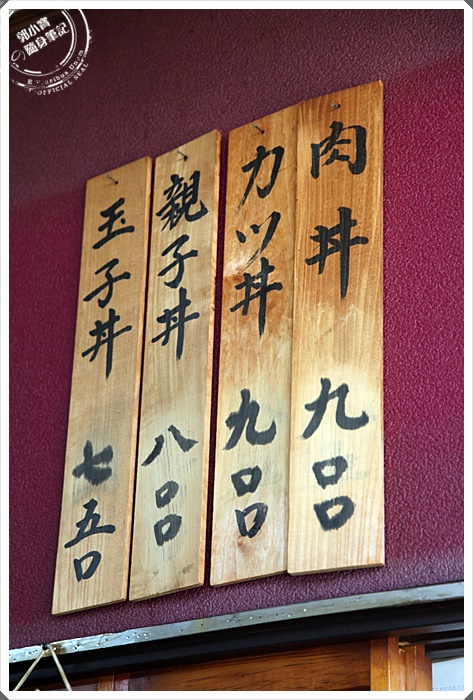 肉丼 九〇〇
カツ丼 九〇〇
親子丼 八〇〇
玉子丼 七五〇
郭小寶
の隨身筆記
OFFICIAL SEAL